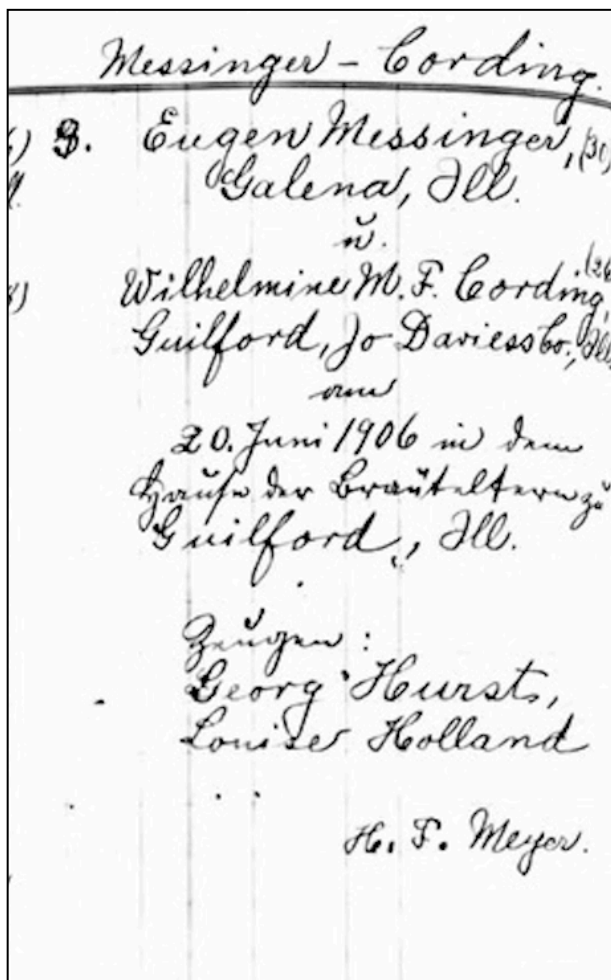 Messinger – Cording.
3. Eugen Messinger, (30)
Galena, Ill.
u.
(26
Wilhelmine M. F. Cording,
Guilford, Jo Daviess Co., Ill.
am
20. Juni 1906 in dem
Hause der Brauteltern zu
Guilford, Ill.
Zeugen:
Georg Hurst,
Louise Holland
H. F. Meyer.